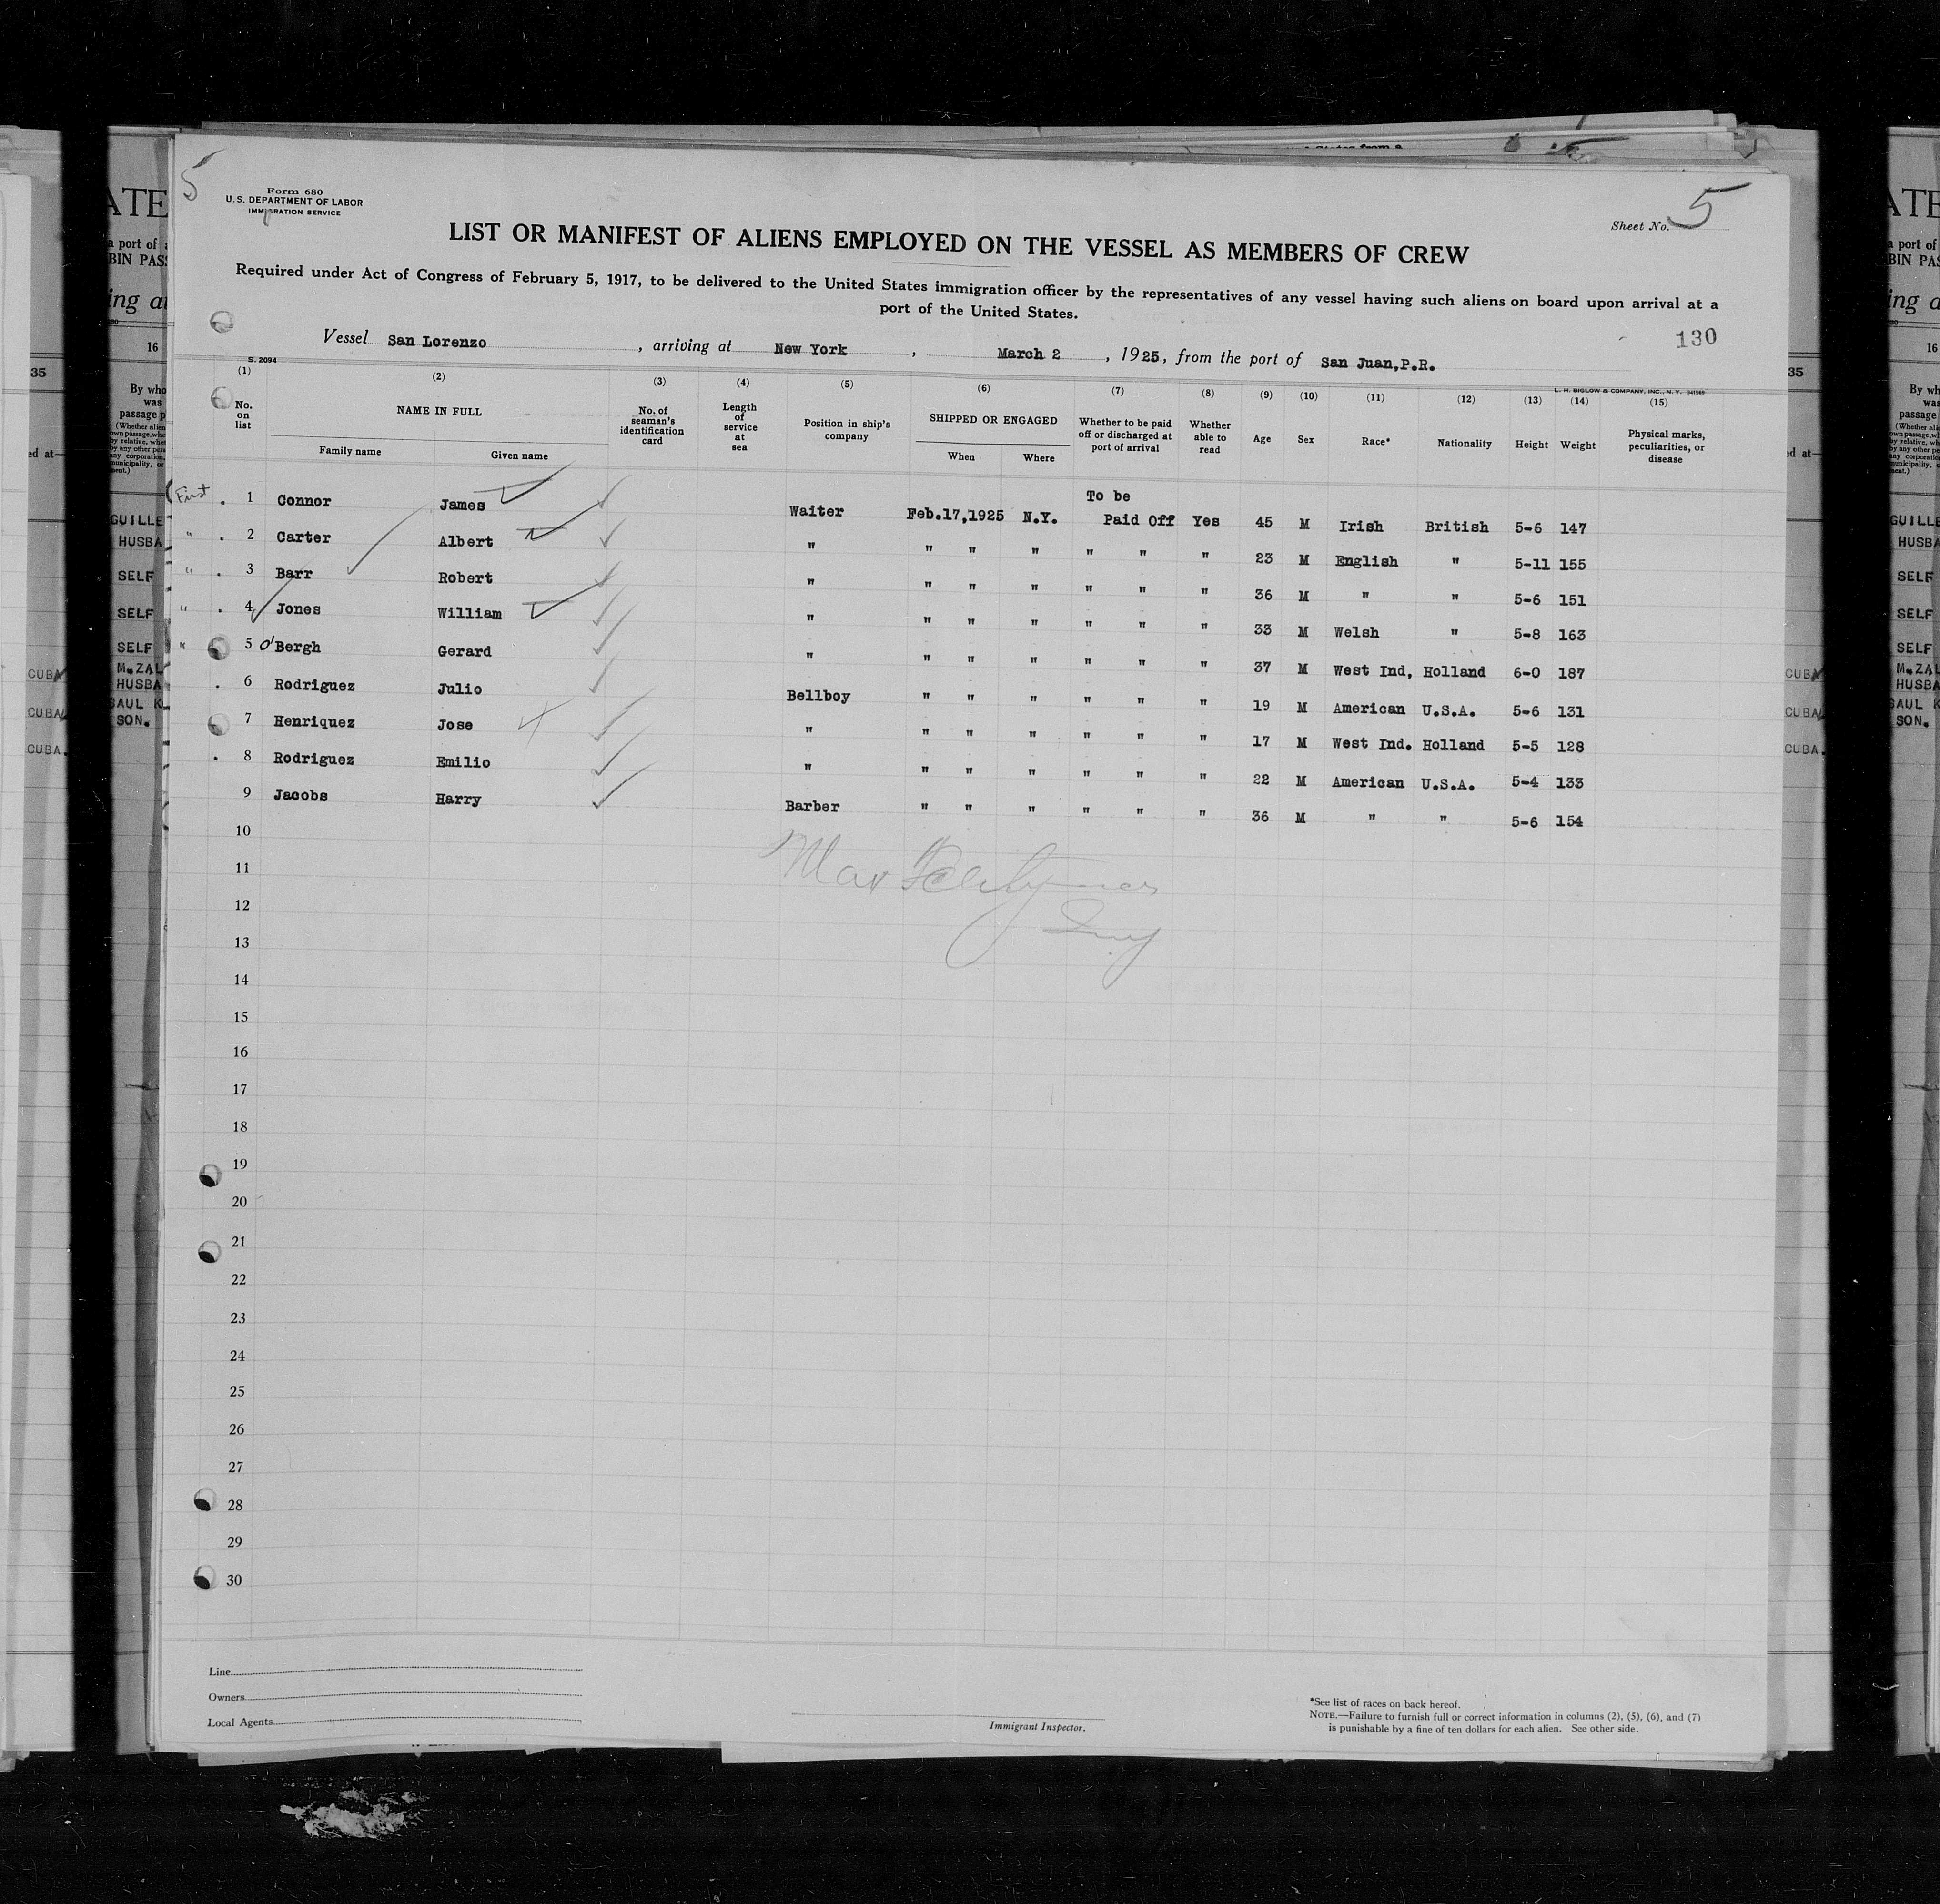 5
Form 680
U.S. DEPARTMENT OF LABOR
IMMIGRATION SERVICE
Sheet No. 5
LIST OR MANIFEST OF ALIENS EMPLOYED ON THE VESSEL AS MEMBERS OF CREW
Required under Act of Congress of February 5, 1917, to be delivered to the United States immigration officer by the representatives of any vessel having such aliens on board upon arrival at a
port of the United States.
130
Vessel San Lorenzo, arriving at New York, March 2, 1925, from the port of San Juan,P.R.
S. 2094
L. H. BIGLOW & COMPANY, INC., N. Y.
(1) (2) (3) (4) (5) (6) (7) (8) (9) (10) (11) (12) (13) (14) (15)
No. on list NAME IN FULL Family name Given name No. of seaman's identification card Length of service at sea Position in ship's company SHIPPED OR ENGAGED When Where Whether to be paid off or discharged at port of arrival Whether able to read Age Sex Race* Nationality Height Weight Physical marks, peculiarities, or disease
First 1 Connor James Waiter Feb.17,1925 N.Y. To be Paid Off Yes 45 M Irish British 5-6 147
" 2 Carter Albert " " " " " " " 23 M English " 5-11 155
" 3 Barr Robert " " " " " " " 36 M " " 5-6 151
" 4 Jones William " " " " " " " 33 M Welsh " 5-8 163
" 5 O'Bergh Gerard " " " " " " " 37 M West Ind, Holland 6-0 187
6 Rodriguez Julio Bellboy " " " " " " 19 M American U.S.A. 5-6 131
7 Henriquez Jose " " " " " " " 17 M West Ind. Holland 5-5 128
8 Rodriguez Emilio " " " " " " " 22 M American U.S.A. 5-4 133
9 Jacobs Harry Barber " " " " " " 36 M " " 5-6 154
10
11
12
13
14
15
16
17
18
19
20
21
22
23
24
25
26
27
28
29
30
Line
Owners
Local Agents
Immigrant Inspector.
*See list of races on back hereof.
NOTE.—Failure to furnish full or correct information in columns (2), (5), (6), and (7)
is punishable by a fine of ten dollars for each alien. See other side.